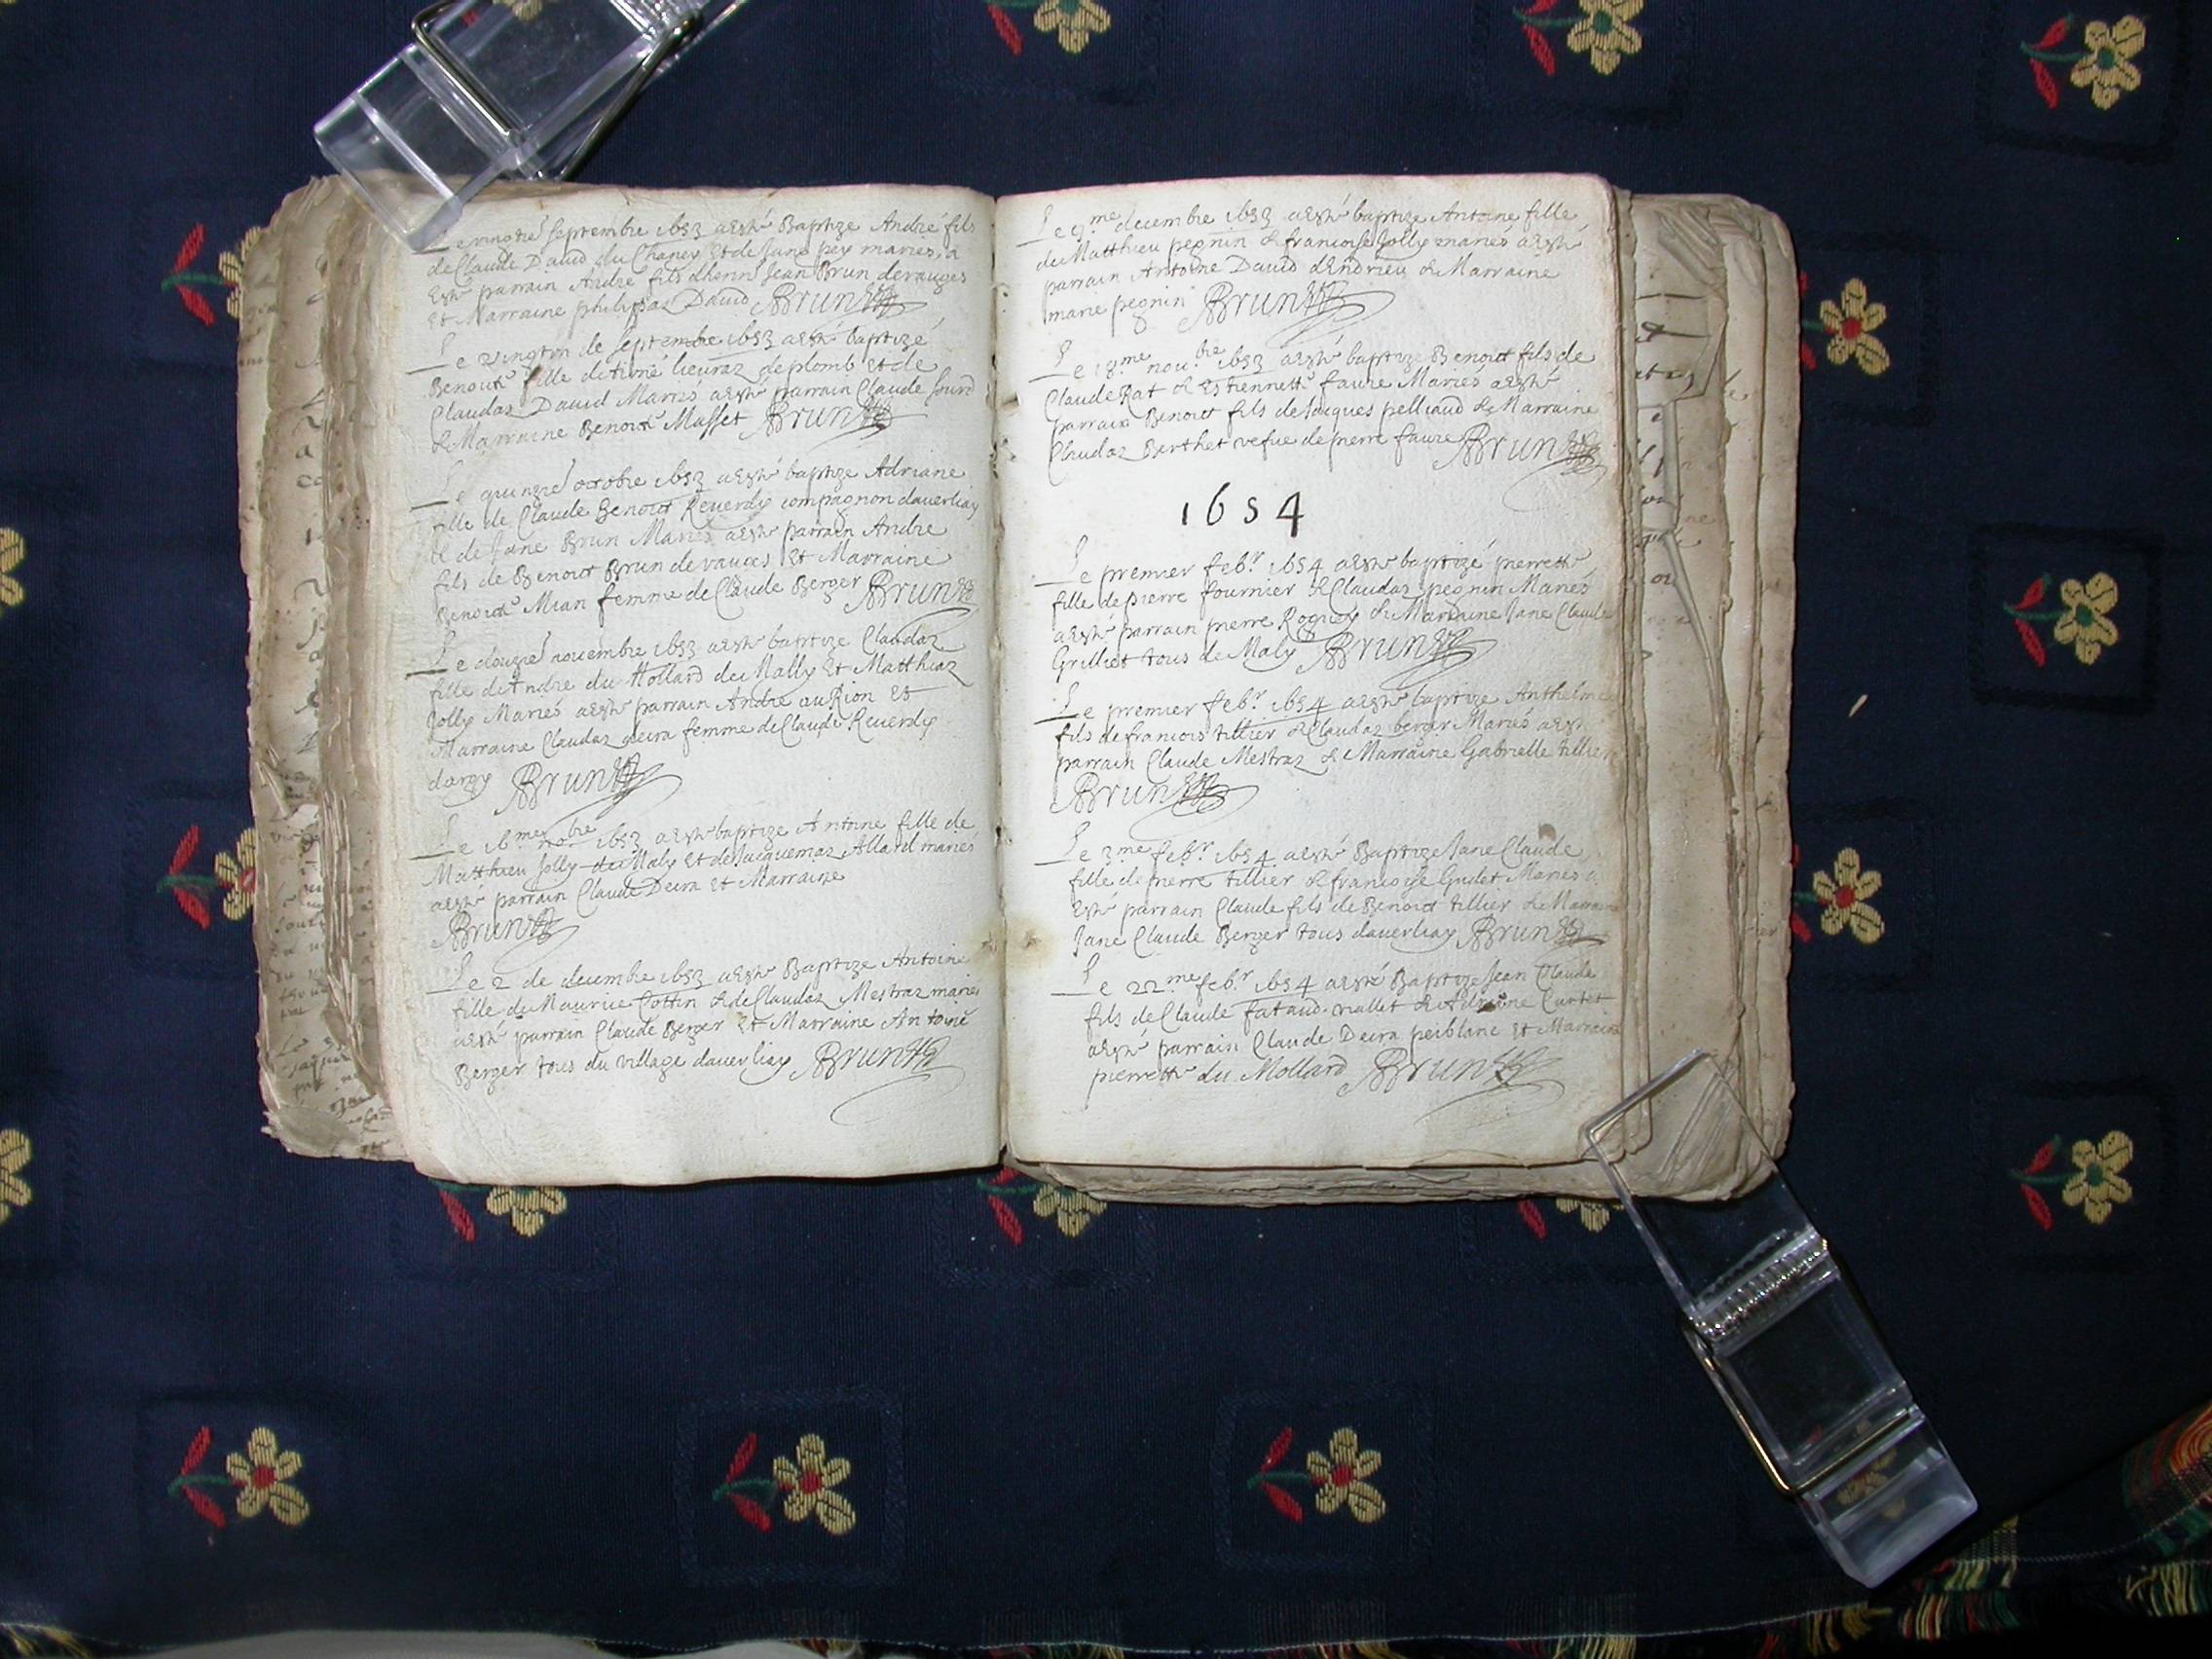 septembre 1653 a esté Baptize André fils
de Claude David du Chaney et de Jane pey mariés, a
esté parrain André fils dhonn Jean Brun devauges
et Marraine philipaz David ABrun
Le de septembre 1653 a esté baptizé
Benoite fille de lieuraz deplomb et de
Claudaz David Mariés a esté parrain Claude
& Marraine Benoite Masset ABrun
Le quinzie octobre 1653 a esté baptize Adriane
fille de Claude Benoict Reverdy compagnon daverliay
et de Jane Brun Mariés a esté parrain André
fils de Benoict Brun de vauces et Marraine
Benoite Mian femme de Claude Berger ABrun
Le douzie novembre 1653 a esté baptize Claudaz
fille d'Andre du Mollard de Mally et Matthiaz
Jolly Mariés a esté parrain André au Rion et
Marraine Claudaz deira femme de Claude Reverdy
ABrun
Le 16me 1653 a esté baptize Antoine fille de
Matthieu Jolly de Maly et de Jacquemaz Allard mariés
a esté parrain Claude Deira et Marraine
ABrun
Le 2 de decembre 1653 a esté Baptize Antoine
fille de Maurice Cottin & de Claudaz Mestraz mariés
a esté parrain Claude Berger et Marraine Antoine
Berger tous du village daverliay ABrun
Le 9me decembre 1653 a esté baptize Antoine fille
de Matthieu pegnin & francoise Jolly mariés a esté
parrain Antoine David dEndrieu & Marraine
marie pegnin ABrun
Le 18me nou.bre 1653 a esté baptize Benoict fils de
Claude Rat & Estiennette faure Mariés a esté
parrain Benoict fils de Jacques pelliaud & Marraine
Claudaz Berthet vefue de pierre faure ABrun
1654
Le premier feb.r 1654 a esté baptizé pierrette
fille de pierre fournier & Claudaz pegnin Mariés
a esté parrain pierre Roquey & Marraine Jane Claude
Grilliet tous de Maly ABrun
Le premier feb.r 1654 a esté baptize Anthelme
fils de francois tillier & Claudaz berger Mariés a esté
parrain Claude Mestraz & Marraine Gabrielle tillier
ABrun
Le 3me feb.r 1654 a esté Baptize Jane Claude
fille de pierre tillier & francoise Gudet Mariés a
esté parrain Claude fils de Benoict tillier & Marraine
Jane Claude Berger tous daverliay ABrun
Le 22me feb.r 1654 a esté Baptize Jean Claude
fils de Claude fataud viallet & Adriane Curtet
a esté parrain Claude Deira peiblanc et Marraine
pierrette du Mollard ABrun